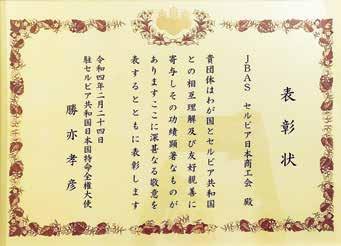 表彰状
JBAS セルビア日本商工会 殿
貴団体はわが国とセルビア共和国
との相互理解及び友好親善に
寄与しその功績顕著なものが
ありますここに深甚なる敬意を
表するとともに表彰します
令和四年二月二十四日
駐セルビア共和国日本国特命全権大使
勝亦孝彦